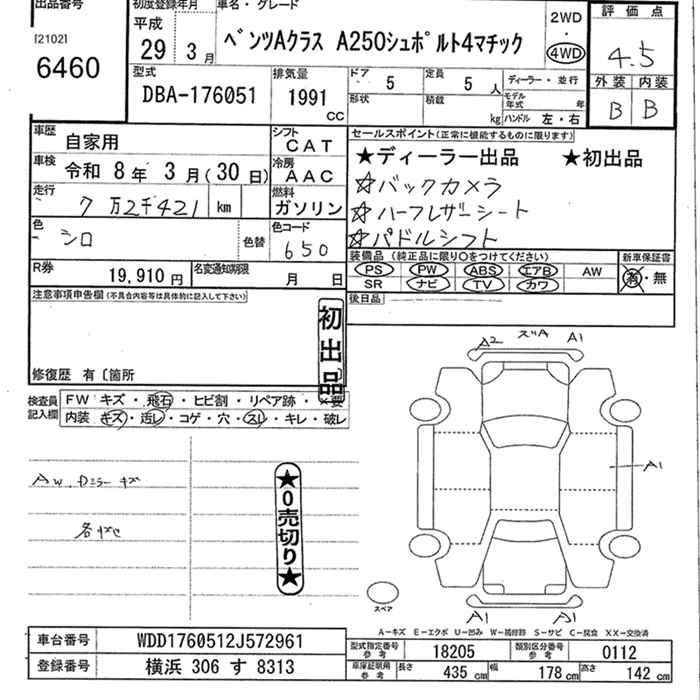 出品番号 初度登録年月 車名・グレード 評価点
[2102] 平成 2WD
6460 29年3月 ベンツAクラス A250シュポルト4マチック 4WD 4.5
型式 排気量 ドア 5 定員 5人 ディーラー・並行 外装 内装
DBA-176051 1991 CC 形状 積載 kg モデル年式 年 B B
ハンドル 左・右
車歴 自家用 シフト CAT セールスポイント(正常に機能するものに限ります)
車検 令和 8年 3月(30日) 冷房 AAC ★ディーラー出品 ★初出品
走行 7万2千421 km 燃料 ガソリン ☆バックカメラ
☆ハーフレザーシート
色 シロ 色替 色コード 650 ☆パドルシフト
R券 19,910円 名変通知期限 月 日 装備品(純正品に限り○をつけてください) 新車保証書
PS PW ABS エアB AW 有・無
SR ナビ TV カワ
注意事項申告欄(不具合内容等は具体的に記入して下さい) 後日品
初出品
修復歴 有〔箇所 〕
検査員記入欄 FW キズ・飛石・ヒビ割・リペア跡・×要
内装 キズ・汚レ・コゲ・穴・スレ・キレ・破レ
A2 スリA A1
AW、Dミラーキズ A1
★0売切り★
スペア A1 A1
A-キズ E-エクボ U-凹み W-補修跡 S-サビ C-腐食 XX-交換済
車台番号 WDD1760512J572961 型式指定番号 参考 18205 類別区分番号 参考 0112
登録番号 横浜 306 す 8313 車庫証明用 参考 長さ 435 cm 幅 178 cm 高さ 142 cm